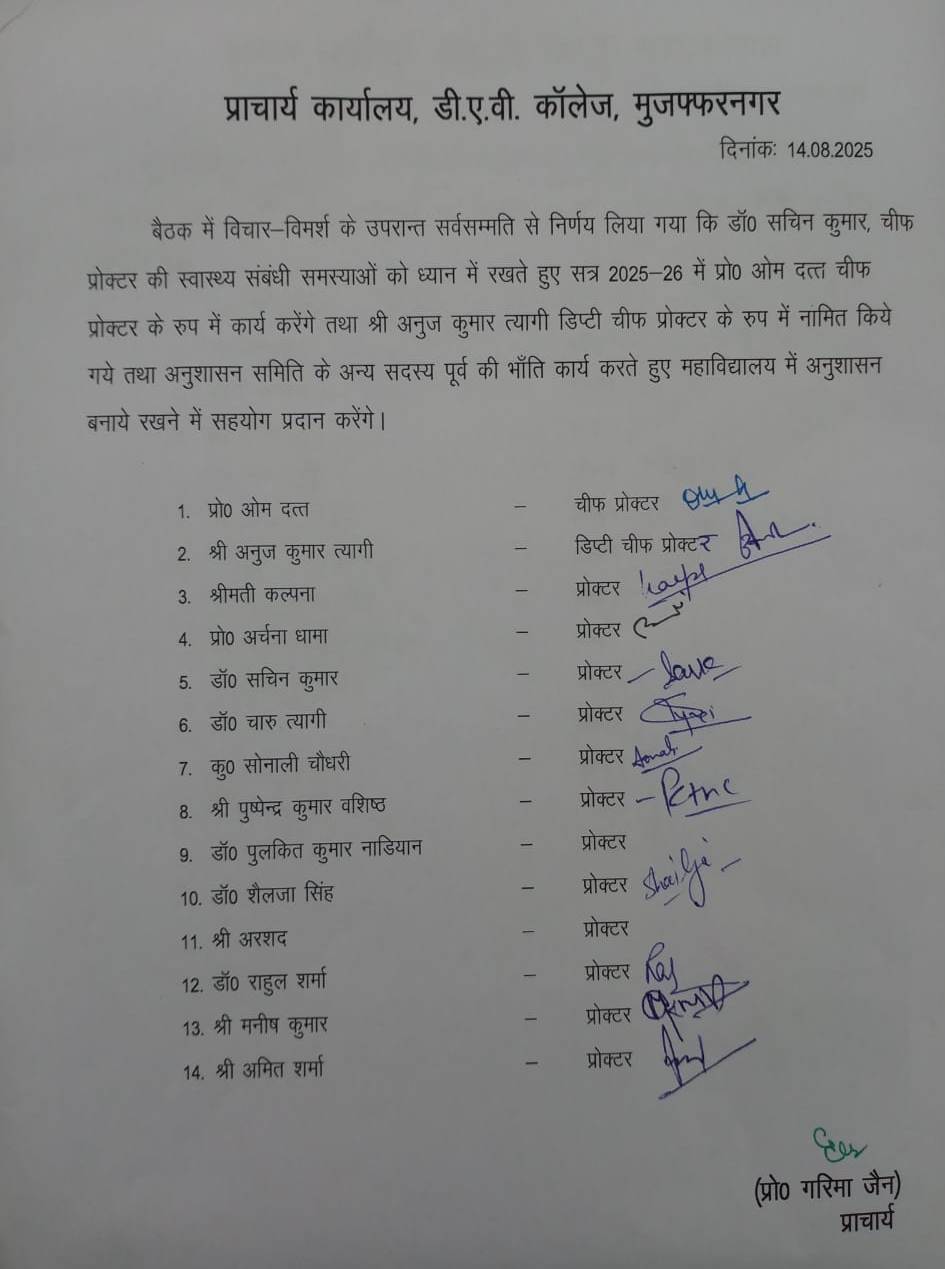 प्राचार्य कार्यालय, डी.ए.वी. कॉलेज, मुजफ्फरनगर
दिनांकः 14.08.2025
बैठक में विचार–विमर्श के उपरान्त सर्वसम्मति से निर्णय लिया गया कि डॉ0 सचिन कुमार, चीफ
प्रोक्टर की स्वास्थ्य संबंधी समस्याओं को ध्यान में रखते हुए सत्र 2025–26 में प्रो0 ओम दत्त चीफ
प्रोक्टर के रुप में कार्य करेंगे तथा श्री अनुज कुमार त्यागी डिप्टी चीफ प्रोक्टर के रुप में नामित किये
गये तथा अनुशासन समिति के अन्य सदस्य पूर्व की भाँति कार्य करते हुए महाविद्यालय में अनुशासन
बनाये रखने में सहयोग प्रदान करेंगे।
1. प्रो0 ओम दत्त – चीफ प्रोक्टर
2. श्री अनुज कुमार त्यागी – डिप्टी चीफ प्रोक्टर
3. श्रीमती कल्पना – प्रोक्टर
4. प्रो0 अर्चना धामा – प्रोक्टर
5. डॉ0 सचिन कुमार – प्रोक्टर
6. डॉ0 चारु त्यागी – प्रोक्टर
7. कु0 सोनाली चौधरी – प्रोक्टर
8. श्री पुष्पेन्द्र कुमार वशिष्ठ – प्रोक्टर
9. डॉ0 पुलकित कुमार नाडियान – प्रोक्टर
10. डॉ0 शैलजा सिंह – प्रोक्टर Shailja
11. श्री अरशद – प्रोक्टर
12. डॉ0 राहुल शर्मा – प्रोक्टर
13. श्री मनीष कुमार – प्रोक्टर
14. श्री अमित शर्मा – प्रोक्टर
(प्रो0 गरिमा जैन)
प्राचार्य